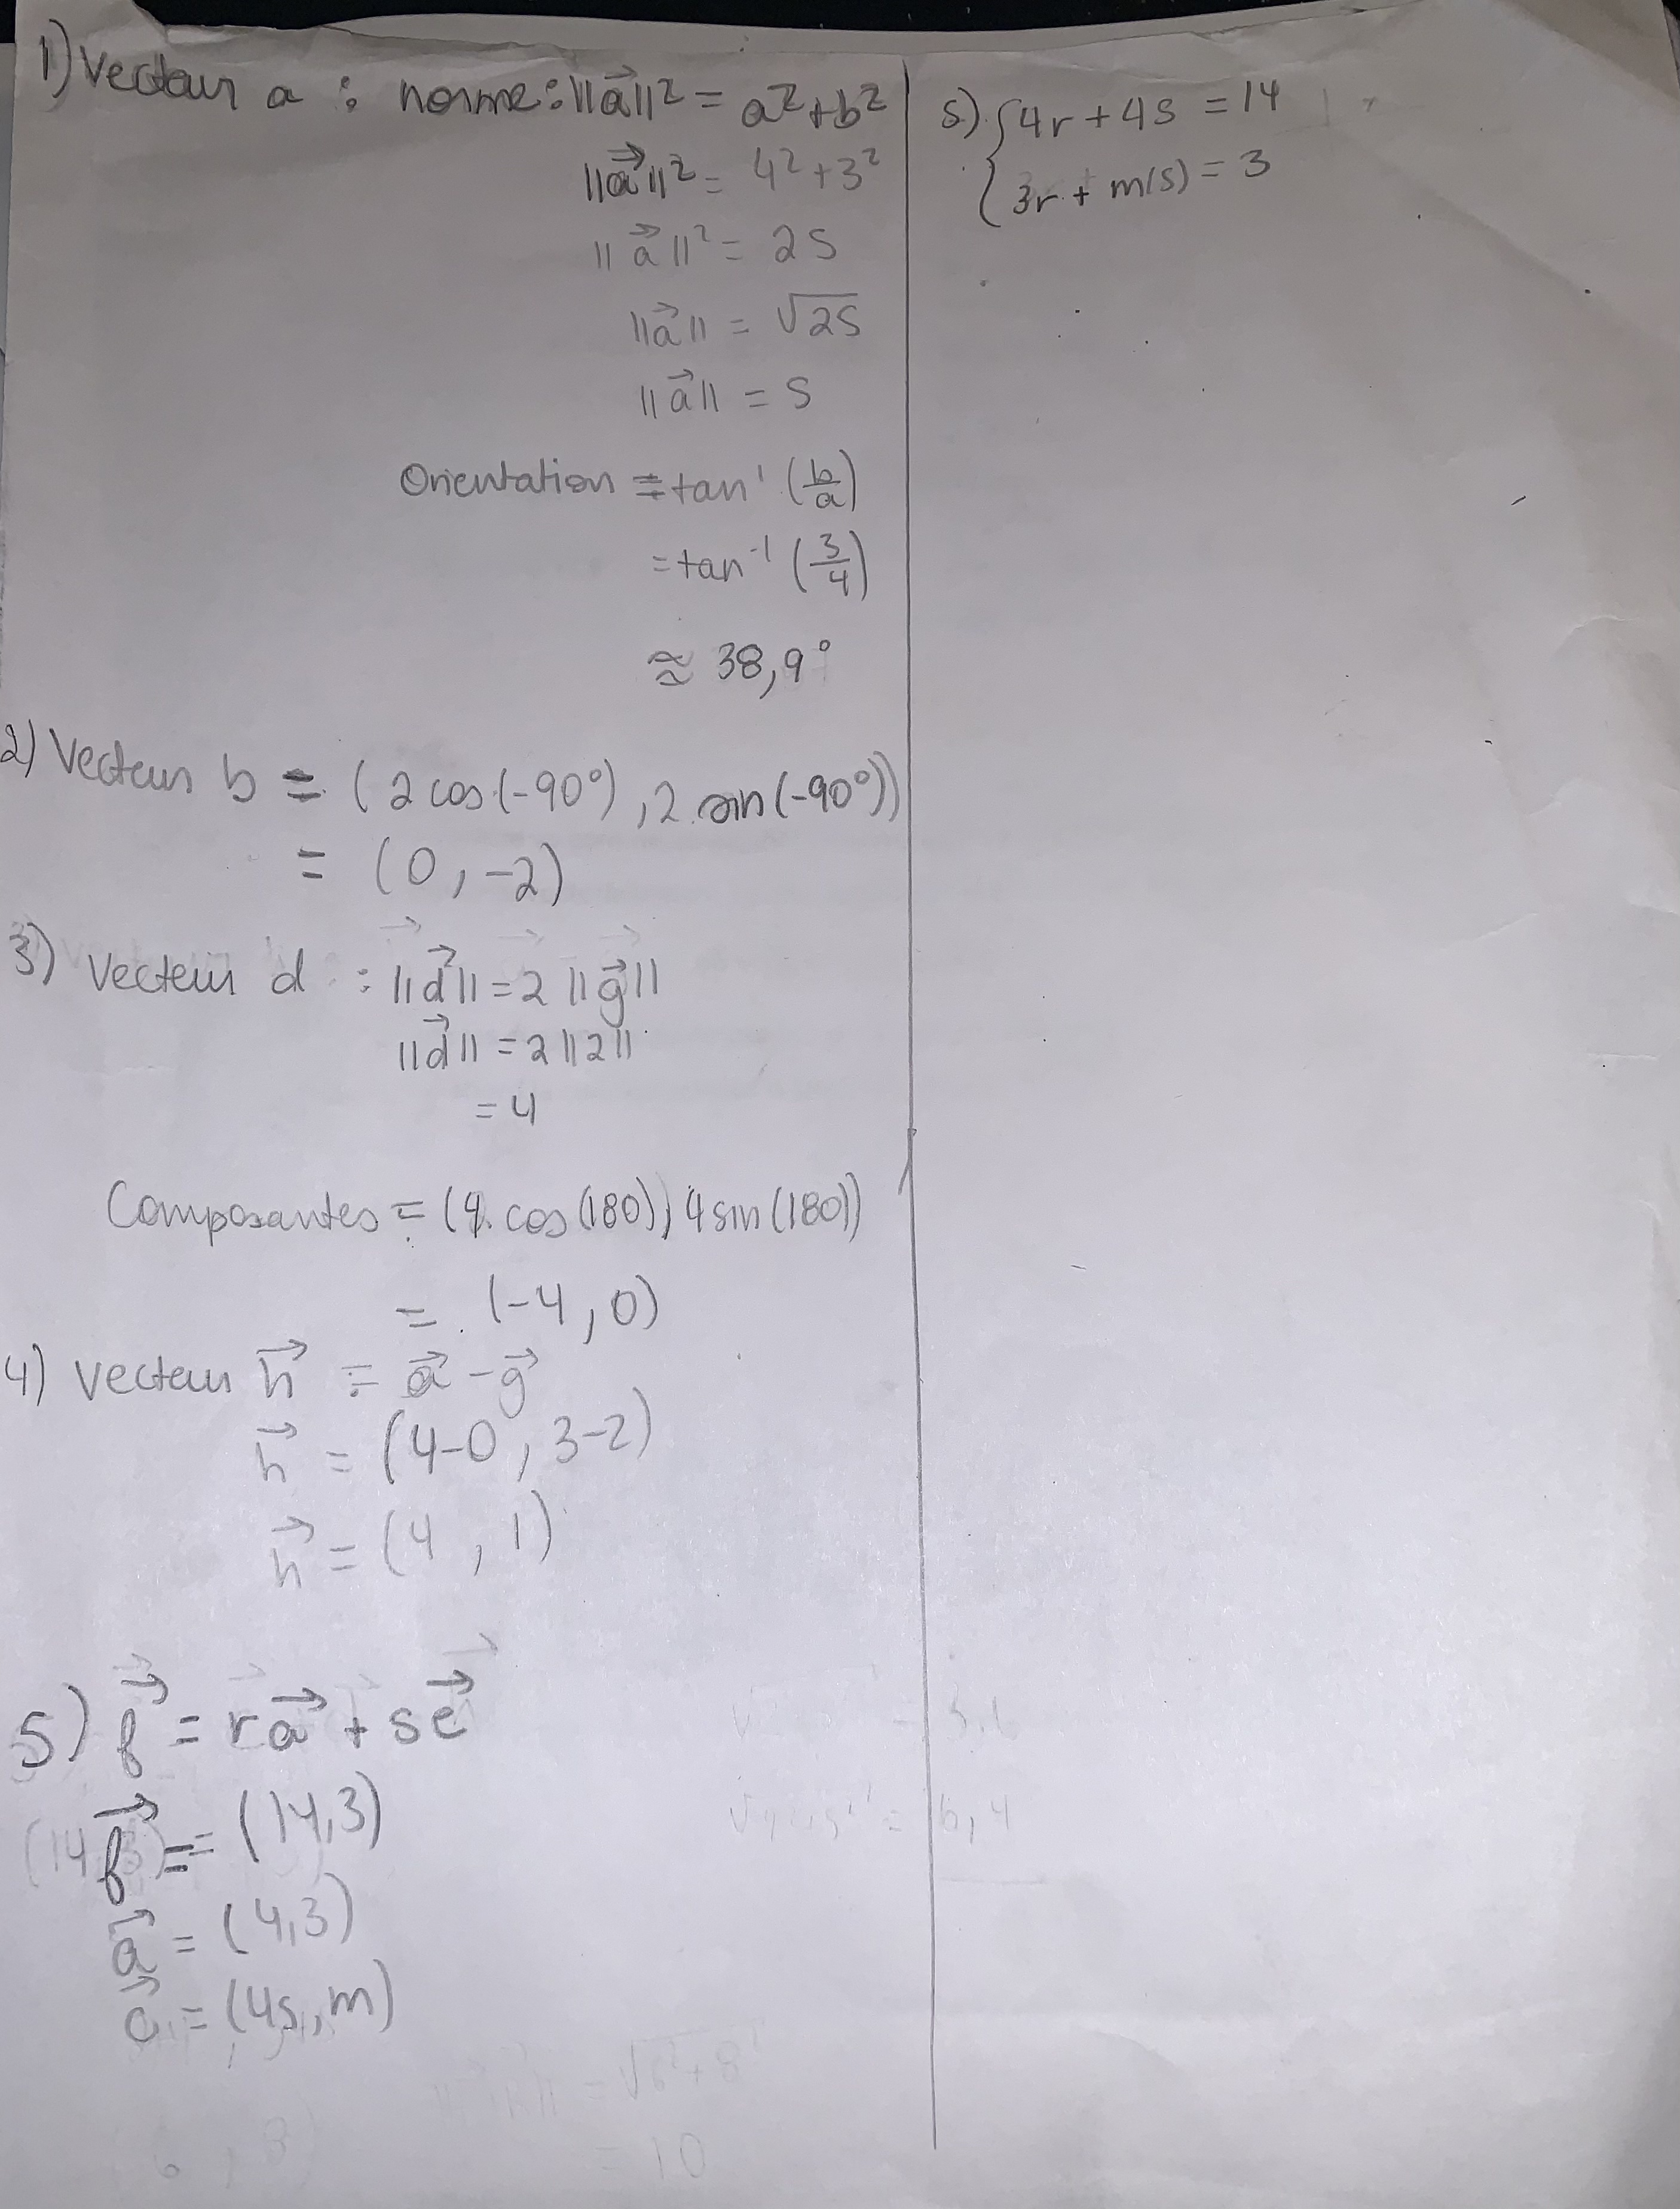 1) Vecteur a : norme : ||a⃗||² = a² + b²
||a⃗||² = 4² + 3²
||a⃗||² = 25
||a⃗|| = √25
||a⃗|| = 5
Orientation = tan⁻¹ (b/a)
= tan⁻¹ (3/4)
≈ 38,9°
2) Vecteur b = (2 cos (-90°), 2 sin (-90°))
= (0, -2)
3) Vecteur d : ||d⃗|| = 2 ||g⃗||
||d⃗|| = 2 ||2||
= 4
Composantes = (4 . cos (180), 4 sin (180))
= (-4, 0)
4) Vecteur h⃗ = a⃗ - g⃗
h⃗ = (4-0, 3-2)
h⃗ = (4, 1)
5) f⃗ = ra⃗ + se⃗
f⃗ = (14,3)
a⃗ = (4,3)
= (4s, m)
5) { 4r + 4s = 14
3r + m(s) = 3